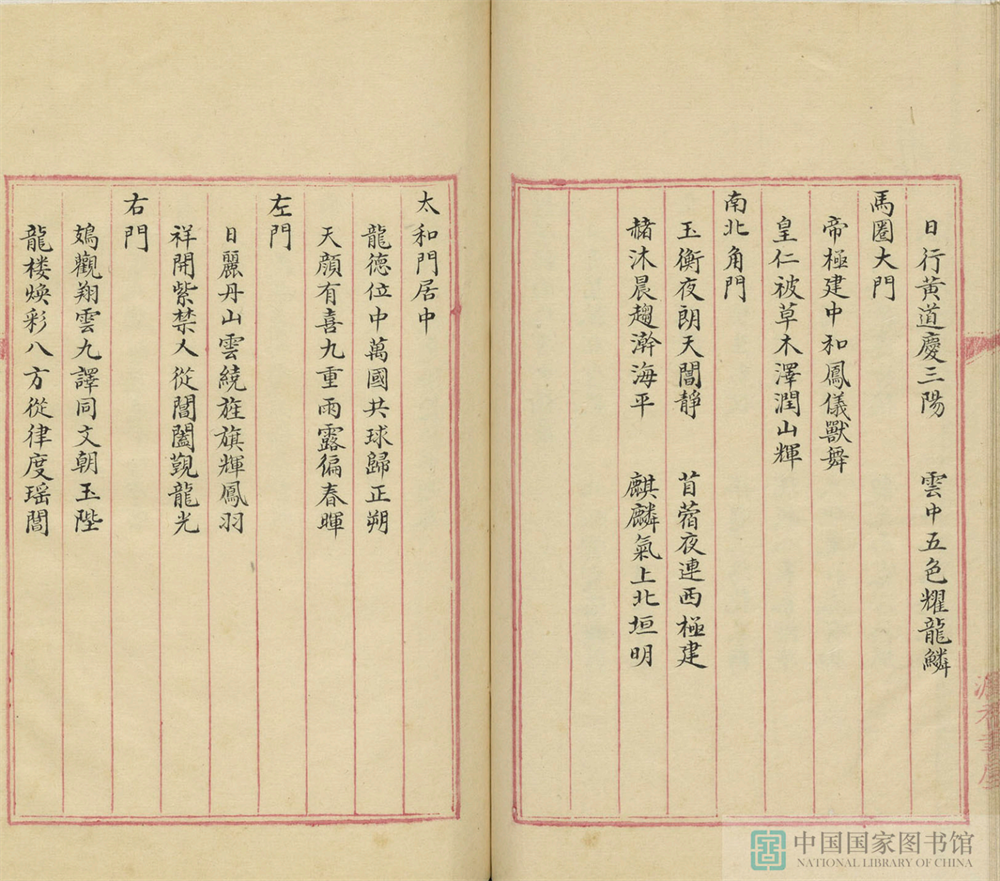 日行黃道慶三陽　雲中五色耀龍鱗
馬圈大門
帝極建中和鳳儀獸舞
皇仁被草木澤潤山輝
南北角門
玉衡夜朗天閶靜　苜蓿夜連西極建
赭沐晨趨瀚海平　麒麟氣上北垣明
太和門居中
龍德位中萬國共球歸正朔
天顏有喜九重雨露徧春暉
左門
日麗丹山雲繞旌旗輝鳳羽
祥開紫禁人從閶闔覲龍光
右門
鳷觀翔雲九譯同文朝玉陛
龍楼煥彩八方從律度瑶閶
中国国家图书馆
NATIONAL LIBRARY OF CHINA